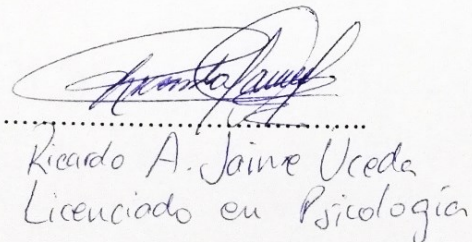 Ricardo A. Jaime Uceda
Licenciado en Psicología